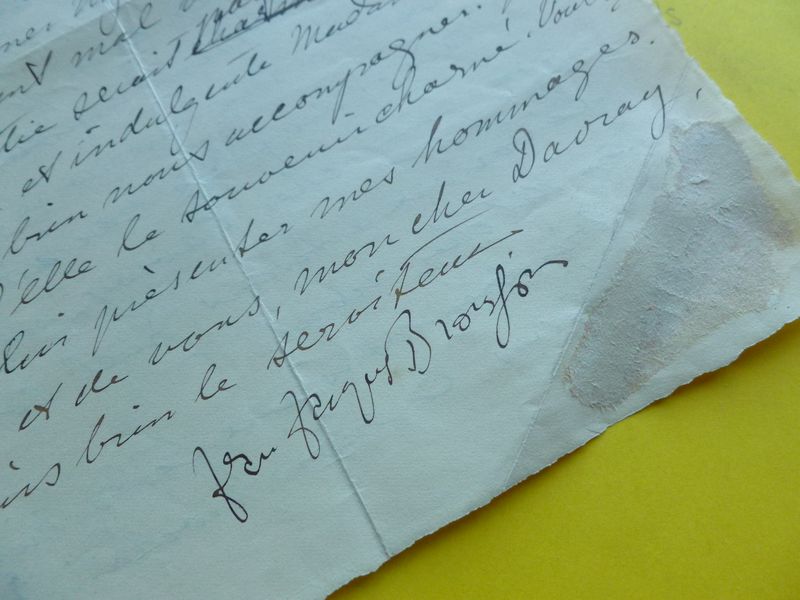 mal
serait
et indulgente Madam
bien nous accompagner.
d'elle le souvenir charmé. Voul
lui présenter mes hommages.
et de vous, mon cher Davray,
bien le serviteur
Jean Jacques Brousson